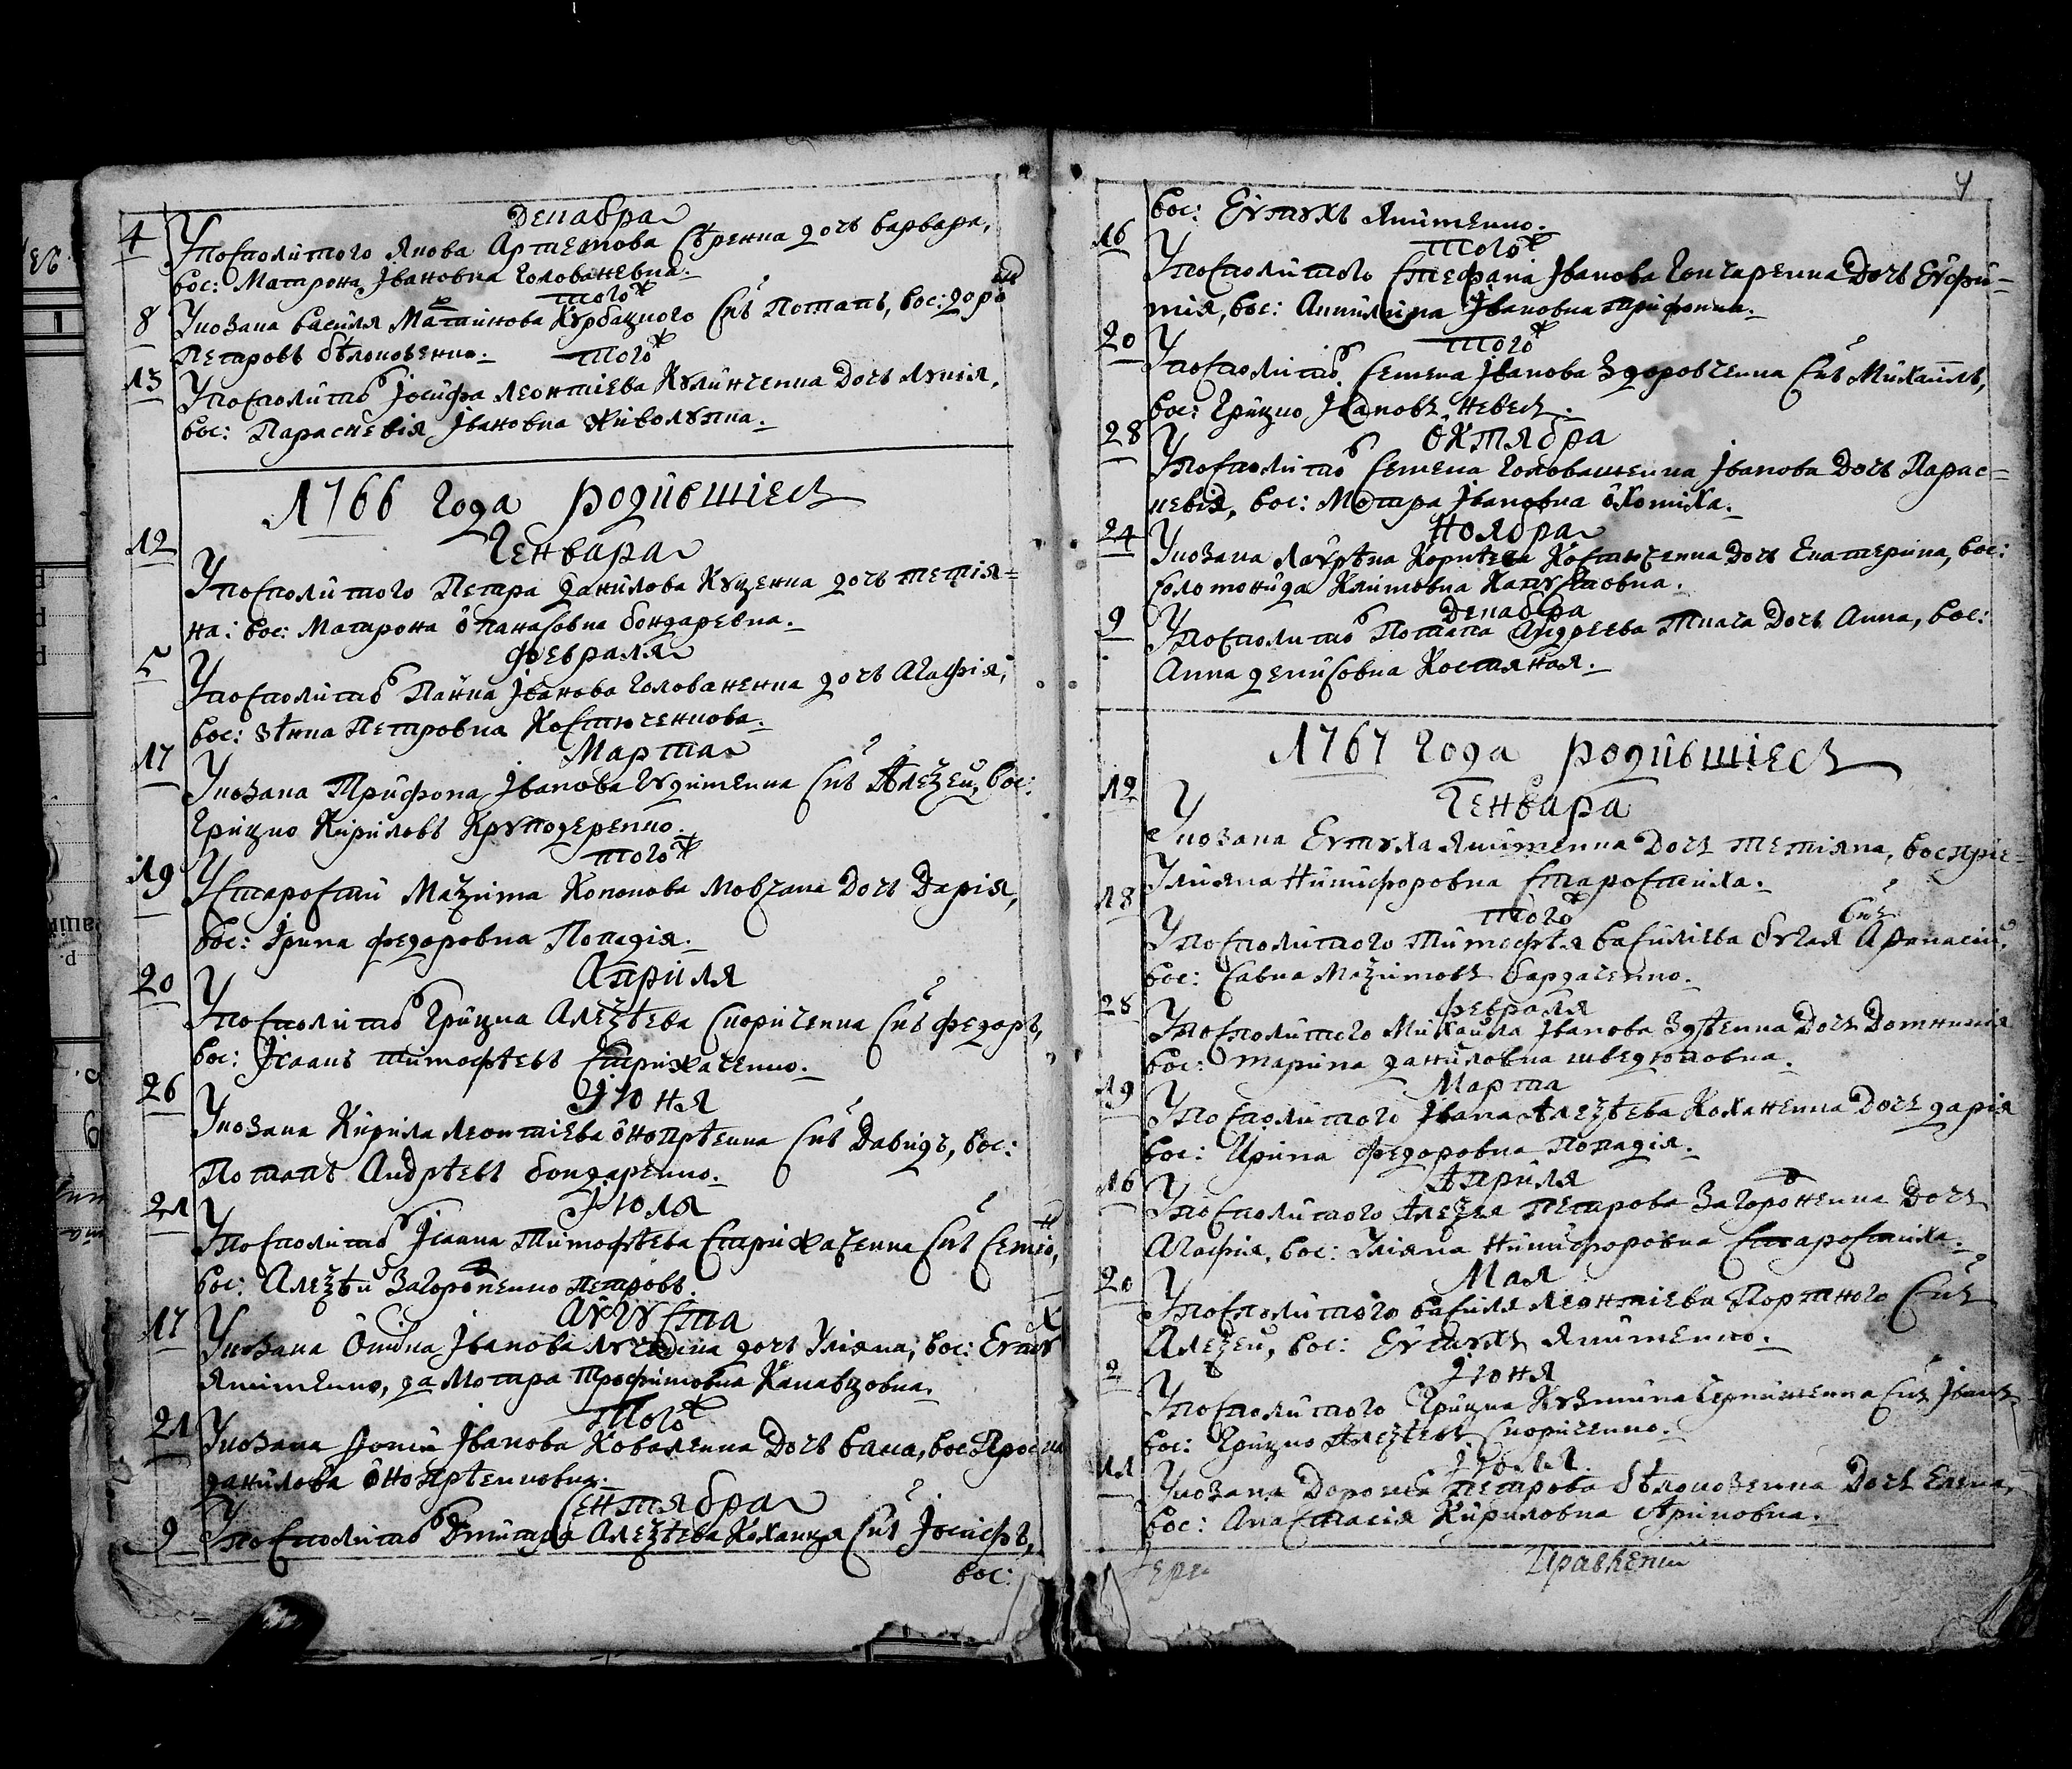 Декабра
4 У посполитого Якова Артемова Сѣренка дочь Варвара,
вос: Матрона Івановна Голованевна.
того ж
8 У козака Василя Матвикова Курбацкого Снъ Потапъ, вос: доро
Петровъ бѣлоконенко.
того ж
13 У посполито Іосифа Леонтіева Кулинченка Дочь Лукія,
вос: Параскевія Івановна Живолупка.
1766 Года родившіесѧ
Генвара
12 У посполитого Петра Данилова Куценка дочь тетія=
на: вос: Матрона Опанасовна бондаревна.
Февраля
5 У посполито Панка Іванова Голованенка дочь Агафія,
вос: Зѣнка Петровна Костюченкова.
Марта
17 У козака Трифона Іванова Гудименка Снъ Алеѯей, вос:
Грицко Кириловъ Круподеренко.
того ж
19 У старости Маѯима Кононова Мовчана Дочь Дарія,
вос: Ірина Федоровна Попадія.
Априля
20 У посполито Грицка Алеѯѣева Скориченка Снъ Федоръ,
вос: Ісаакъ тимофѣевъ Стрижаченко.
Іюня
26 У козака Кирила Леонтіева Онопрѣенка Снъ Давидъ, вос:
Потапъ Андрѣевъ бондаренко.
Іюля
21 У посполито Ісаака Тимофѣева Стрижаченка Снъ Семіо,
вос: Алеѯѣй Загороденко Петровъ.
Августа
17 У козака Іванова дочь Уліяна, вос: Евтух
Якименко, да Мотра Трофимовна Канавцовна.
Того ж
21 У козака Іванова Коваленка Дочь васа, вос:
данилова Онопрѣенковна.
Сентябра
9 У посполито Дмитра Алеѯѣева Коханця Снъ Іосифъ,
вос:
4
вос: Евтухъ Якименко.
того ж
16 У посполитого Стефана Іванова Гончаренка Дочь Евфи=
мія, вос: Акилина Івановна Трифонка.
того ж
20 У посполито Семена Іванова Здоровченка Снъ Михаилъ,
вос: Грицко Івановъ Невесѧ.
Октября
28 У посполито Семена Головатенка Іванова Дочь Парас=
кевія, вос: Мотра Івановна
Ноябра
24 У козака Лаврѣна Корнѣева Костюченка Дочь Екатерина, вос:
Соломонида Климовна Капустовна.
Декабра
9 У посполито Потапа Андреева Ткача Дочь Анна, вос:
Анна денисовна Костяная.
1767 Года родившіесѧ
Генвара
12 У козака Евтуха Якименка Дочъ тетіяна, воспріе=
Уліяна Никифоровна Старостиха.
того ж
18 У посполитого Тимофѣя Василіева бугая Снъ Афанасій,
вос: Савка Маѯимовъ бардаченко.
Февраля
28 У посполитого Михайла Іванова Здѣенка Дочъ Домникія
вос: Марина даниловна шведюковна.
Марта
19 У посполитого Івана Алеѯѣева Коханенка Дочъ дарія
вос: Ирина Федоровна Попадія.
Априля
16 У посполитого Алеѯѣя Петрова Загороденка Дочъ
Агафія, вос: Уліяна Никифоровна Старостиха.
Мая
20 У посполитого Василя Леонтіева Портного Снъ
Алеѯей, вос: Евтухъ Якименко.
Іюня
2 У посполитого Грицка Кузмина Снъ Іванъ
вос: Грицко Алеѯѣевъ Скориченко.
Іюля
11 У козака Дорошка Петрова бѣлоконенка Дочъ Елена,
вос: Анастасія Кириловна